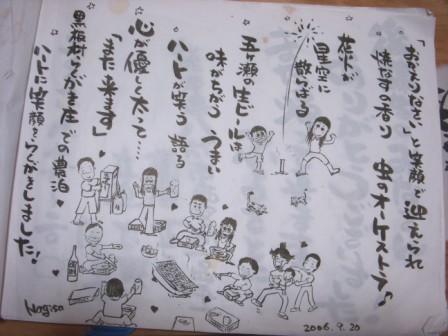 「おかえりなさい」と笑顔で迎えられ
焼なすの香り 虫のオーケストラ♪
花火が
星空に
散らばる
五ヶ瀬の生ビールは
味がちがう うまい
ハートが笑う 語る
心が優しく太って…
「また 来ます」
黒板村らくがき庄での農泊
ハートに笑顔をらくがきしました!
Nagisa
2006.9.20